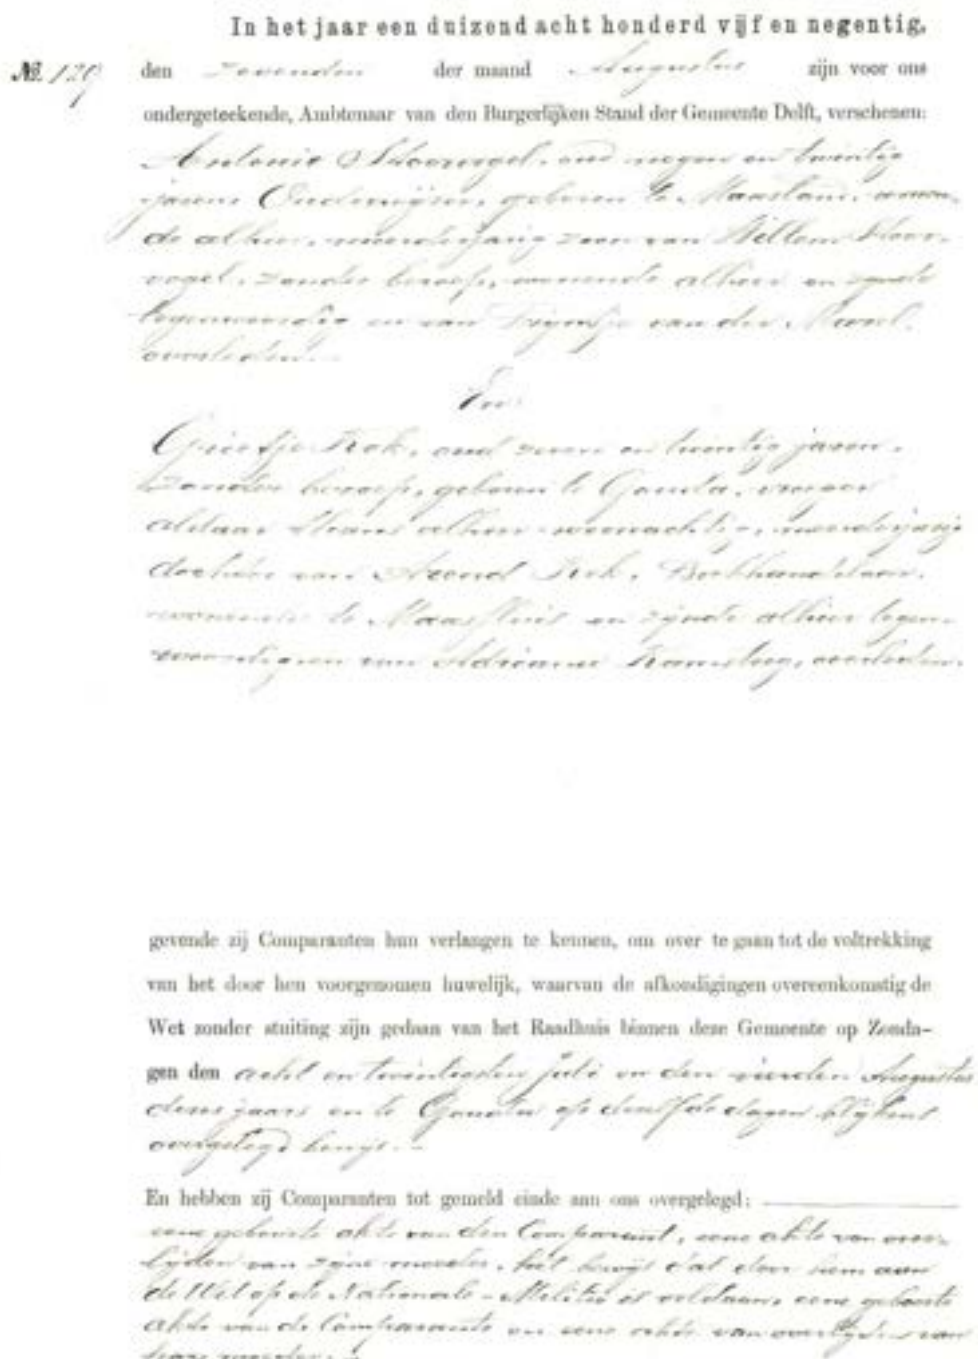 In het jaar een duizend acht honderd vijf en negentig,
№ 129 den zevenden der maand Augustus zijn voor ons
ondergeteekende, Ambtenaar van den Burgerlijken Stand der Gemeente Delft, verschenen:
Antonie oud negen en twintig
jaren geboren te Maasland, wonen-
de alhier, meerderjarig zoon van Willem
vogel, zonder beroep, wonende alhier en zijnde
tegenwoordig en van van der
overleden.
En
Grietje Kok, oud zeven en twintig jaren,
zonder beroep, geboren te Gouda, vroeger
aldaar thans alhier woonachtig, meerderjarige
dochter van Arend Kok, Boekhandelaar,
wonende te Maassluis en zijnde alhier tegen-
woordig en van Adriana overleden.
gevende zij Comparanten hun verlangen te kennen, om over te gaan tot de voltrekking
van het door hen voorgenomen huwelijk, waarvan de afkondigingen overeenkomstig de
Wet zonder stuiting zijn gedaan van het Raadhuis binnen deze Gemeente op Zonda-
gen den acht en twintigsten Juli en den vierden Augustus
dezes jaars en te Gouda op dezelfde dagen blijkens
overgelegd bewijs.
En hebben zij Comparanten tot gemeld einde aan ons overgelegd:
eene geboorte akte van den Comparant, eene akte van over-
lijden van zijne moeder, het bewijs dat door hem aan
de Wet op de Nationale Militie is voldaan, eene geboorte
akte van de Comparante en eene akte van overlijden van
hare moeder.